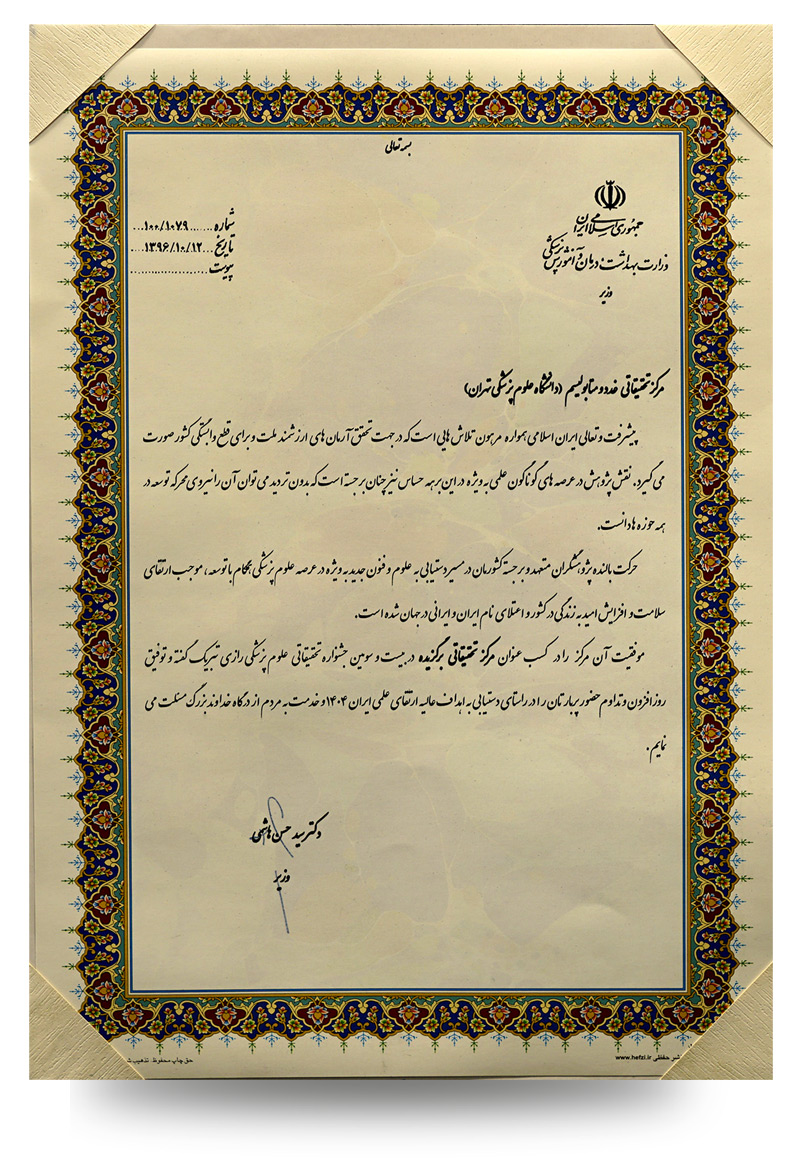 بسمه تعالی
جمهوری اسلامی ایران
وزارت بهداشت، درمان و آموزش پزشکی
وزیر
شماره ......۱۰۰/۱۰۷۹...
تاریخ ...۱۳۹۶/۱۰/۱۲...
پیوست ....................
مرکز تحقیقاتی غدد و متابولیسم (دانشگاه علوم پزشکی تهران)
پیشرفت و تعالی ایران اسلامی همواره مرهون تلاش هایی است که در جهت تحقق آرمان های ارزشمند ملت و برای قطع وابستگی کشور صورت
می گیرد. نقش پژوهش در عرصه های گوناگون علمی به ویژه در این برهه حساس نیز چنان برجسته است که بدون تردید می توان آن را نیروی محرکه توسعه در
همه حوزه ها دانست.
حرکت بالنده پژوهشگران متعهد و برجسته کشورمان در مسیر دستیابی به علوم و فنون جدید به ویژه در عرصه علوم پزشکی همگام با توسعه، موجب ارتقای
سلامت و افزایش امید به زندگی در کشور و اعتلای نام ایران و ایرانی در جهان شده است.
موفقیت آن مرکز را در کسب عنوان مرکز تحقیقاتی برگزیده در بیست و سومین جشنواره تحقیقاتی علوم پزشکی رازی تبریک گفته و توفیق
روز افزون و تداوم حضور پربارتان را در راستای دستیابی به اهداف عالیه ارتقای علمی ایران ۱۴۰۴ و خدمت به مردم از درگاه خداوند بزرگ مسئلت می
نمایم.
دکتر سید حسن هاشمی
وزیر
نشر حفظی www.hefzi.ir
حق چاپ محفوظ. تذهیب